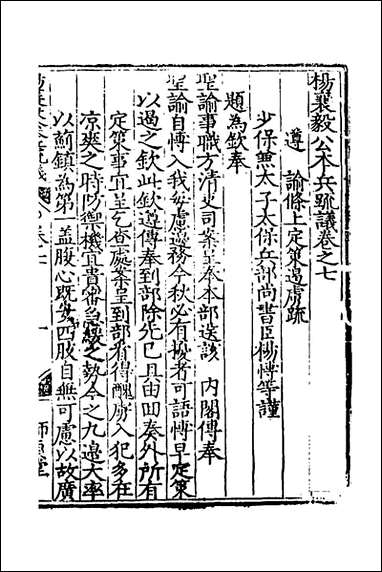 楊襄毅公本兵疏議卷之七
遵　諭條上定策遏虜疏
少保兼太子太保兵部尚書臣楊博等謹
題為欽奉
聖諭事職方清吏司案呈奉本部送該　內閣傳奉
聖諭自博入我好慮邊務今秋必有擾者可語博早定策
以遏之欽此欽遵傳奉到部除先已具由回奏外所有
定策事宜呈乞查處案呈到部看得醜虜入犯多在
凉爽之時防禦機宜貴審急緩之勢今之九邉大率
以薊鎮為第一蓋腹心既安四肢自無可慮以故廣
師儉堂